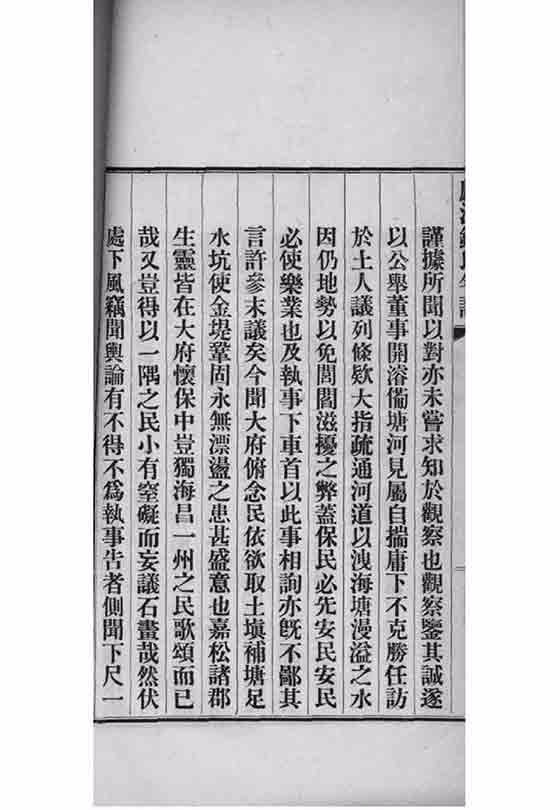 謹據所聞以對亦未嘗求知於觀察也觀察鑒其誠遂
以公舉董事開濬備塘河見屬自揣庸下不克勝任訪
於土人議列條欵大指疏通河道以洩海塘漫溢之水
因仍地勢以免閭閻滋擾之弊蓋保民必先安民安民
必使樂業也及執事下車首以此事相詢亦旣不鄙其
言許參末議矣今聞大府俯念民依欲取土塡補塘足
水坑使金堤鞏固永無漂盪之患甚盛意也嘉松諸郡
生靈皆在大府懷保中豈獨海昌一州之民歌頌而已
哉又豈得以一隅之民小有窒礙而妄議石畫哉然伏
處下風竊聞輿論有不得不爲執事告者側聞下尺一